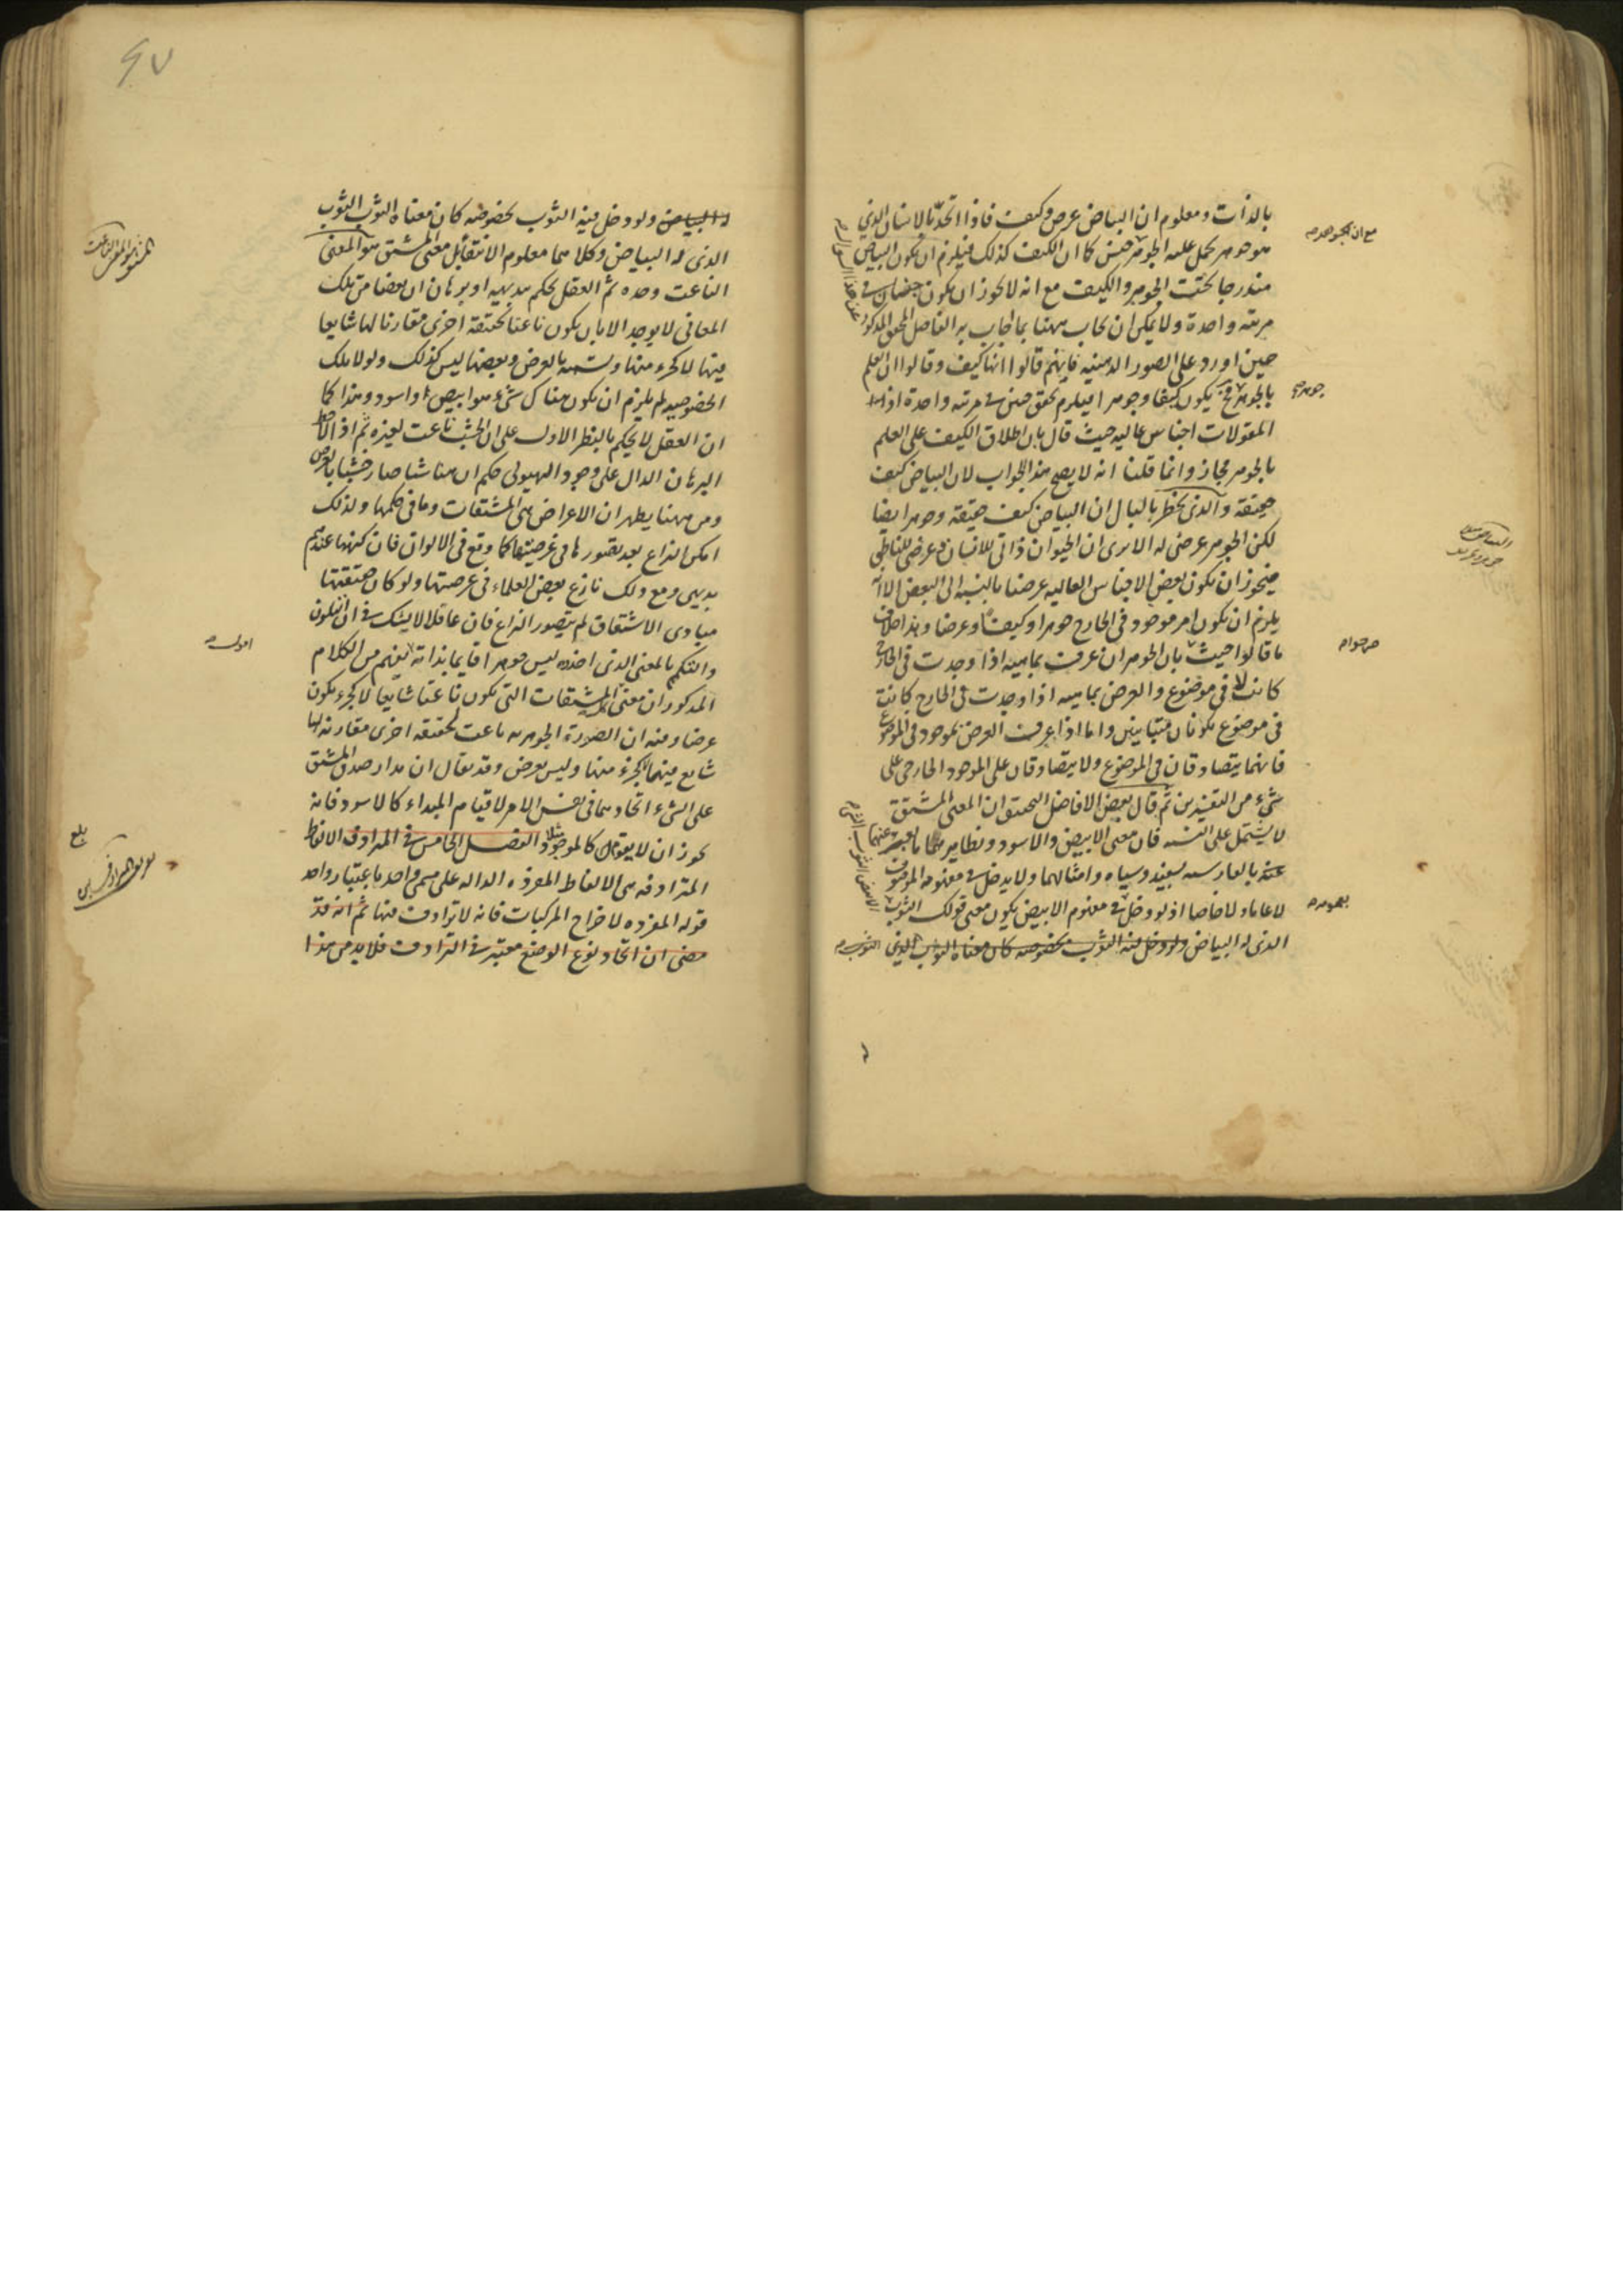 بالذات ومعلوم ان البياض عرض وكيف فاذا اتحد بالانسان الذي
هو جوهر يحمل عليه الجوهر جنس كما ان الكيف كذلك فيلزم ان يكون البياض
مندرجا تحت الجوهر والكيف مع انه لا يجوز ان يكون جنسان في
مرتبة واحدة ولا يمكن ان يجاب ههنا بما اجاب به الفاضل المحقق المذكور
حين اورد على الصور الذهنية فانهم قالوا انها كيف وقالوا ان العلم
بالجوهر يكون كيفا وجوهرا فيلزم تحقق جنس في مرتبة واحدة اذ
المقولات اجناس عالية حيث قال بان اطلاق الكيف على العلم
بالجوهر مجاز وانما قلنا انه لا يصح هذا الجواب لان البياض كيف
حقيقة والذي يخطر بالبال ان البياض كيف حقيقة وجوهر ايضا
لكن الجوهر عرضي له الا يرى ان الحيوان ذاتي للانسان وعرضي للناطق
فيجوز ان يكون بعض الاجناس العالية عرضا بالنسبة الى البعض الا انه
يلزم ان يكون امر موجود في الخارج جوهرا وكيفا وعرضا وهذا خلاف
ما قالوا حيث بان الجوهر ان عرف بماهية اذا وجدت في الخارج
كانت لا في موضوع والعرض بماهية اذا وجدت في الخارج كانت
في موضوع يكونان متباينين واما اذا عرف العرض بموجود في الموضوع
فانهما يتصادقان في الموضوع ولا يتصادقان على الموجود الخارجي على
شيء من التقديرين ثم قال بعض الافاضل التحقيق ان المعنى المشتق
لا يشتمل على النسبة فان معنى الابيض والاسود ونظايرهما ما يعبر عنهما
عنه بالفارسية بسفيد وسياه وامثالهما ولا يدخل في مفهومه الموصوف
لا عاما ولا خاصا اذ لو دخل في مفهوم الابيض يكون معنى قولك الثوب
الذي له البياض ولو دخل فيه الثوب بخصوصه كان معناه الثوب الذي
جوهر
صح جواب
بعمومه
له البياض ولو دخل فيه الثوب بخصوصه كان معناه الثوب الثوب
الذي له البياض وكلاهما معلوم الانتفاء بل معنى المشتق هو المعنى
الناعت وحده ثم العقل يحكم بديهية او برهان ان بعضا من تلك
المعاني لا يوجد الا بان يكون ناعتا لحقيقة اخرى مقارنا لها شايعا
فيها لا كجزء منها ويسميه بالعرض وبعضها ليس كذلك ولولا تلك
الخصوصية لم يلزم ان يكون هناك شيء هو ابيض او اسود وهذا كما
ان العقل لا يحكم بالنظر الاول على ان الخشب ناعت لغيره ثم اذا لاحظ
البرهان الدال على وجود الهيولى حكم ان هنا شيئا صار خشبا بالعرض
ومن ههنا يظهر ان الاعراض هي المشتقات وما في حكمها ولذلك
امكن النزاع بعد تصورها في عرضيتها كما وقع في الالوان فان كنهها عندهم
بديهي ومع ذلك نازع بعض العلماء في عرضيتها ولو كان حقيقتها
مبادي الاشتقاق لم يتصور النزاع فان عاقلا لا يشك في ان اللون
والتكمم بالمعنى الذي اخذه ليس جوهرا قايما بذاته يفهم من الكلام
المذكور ان معنى المشتقات التي يكون ناعتا شايعا لا كجزء يكون
عرضا ومنه ان الصورة الجوهرية ناعت لحقيقة اخرى مقارنة لها
شايع فيهما لكجزء منها وليس بعرض وقد يقال ان مدار صدق المشتق
على الشيء اتحادهما في نفس الامر لا قيام المبداء كالاسود فانه
يجوز ان لا يقوم كالموجود مثلا الفصل الخامس في المترادف الالفاظ
المترادفة هي الالفاظ المفردة الدالة على مسمى واحد باعتبار واحد
قوله المفردة لاخراج المركبات فانه لا ترادف فيها ثم انه قد
مضى ان اتحاد نوع الوضع معتبر في الترادف فلا بد من هذا
المشتق هو المعنى الناعت
اقول
بلغ